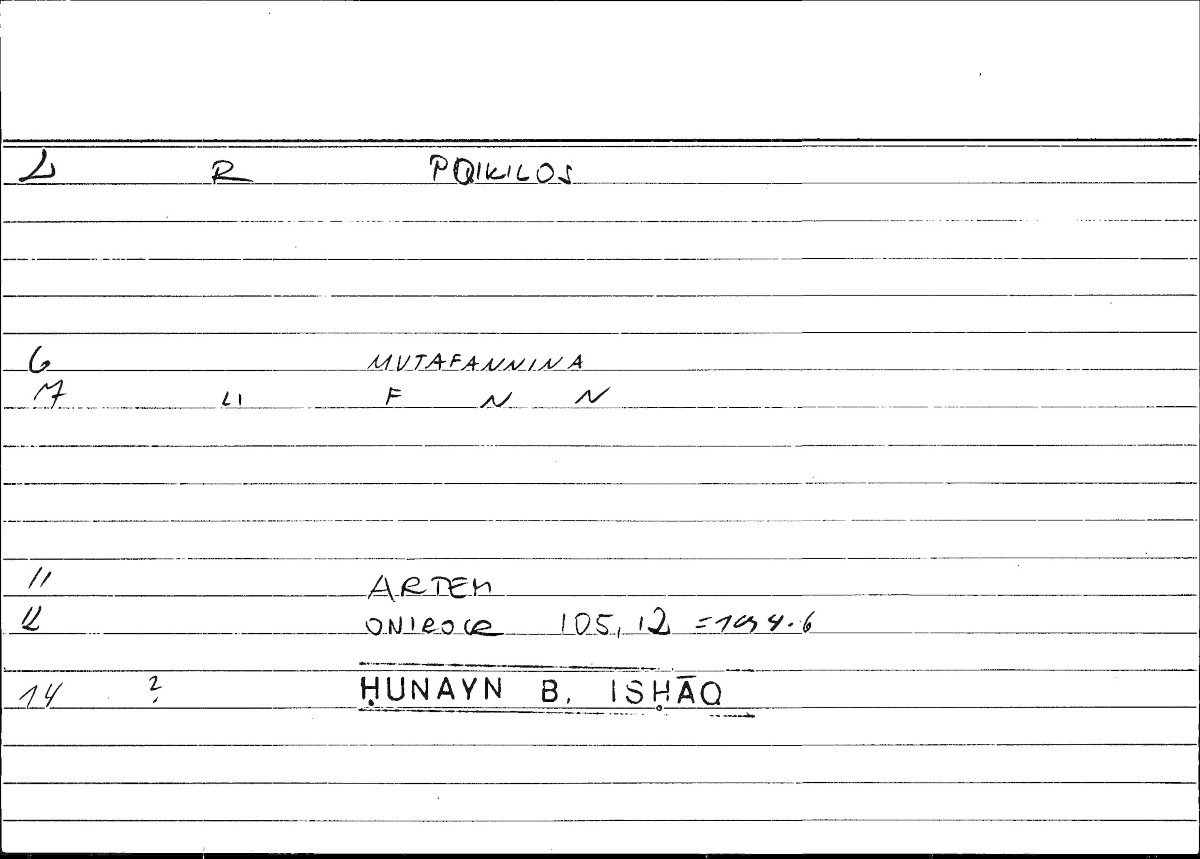 2 R POIKILOS
6 MUTAFANNINA
7 LI F N N
11 ARTEM
12 ONIROCR 105, 12
14 ? ḤUNAYN B. ISḤĀQ